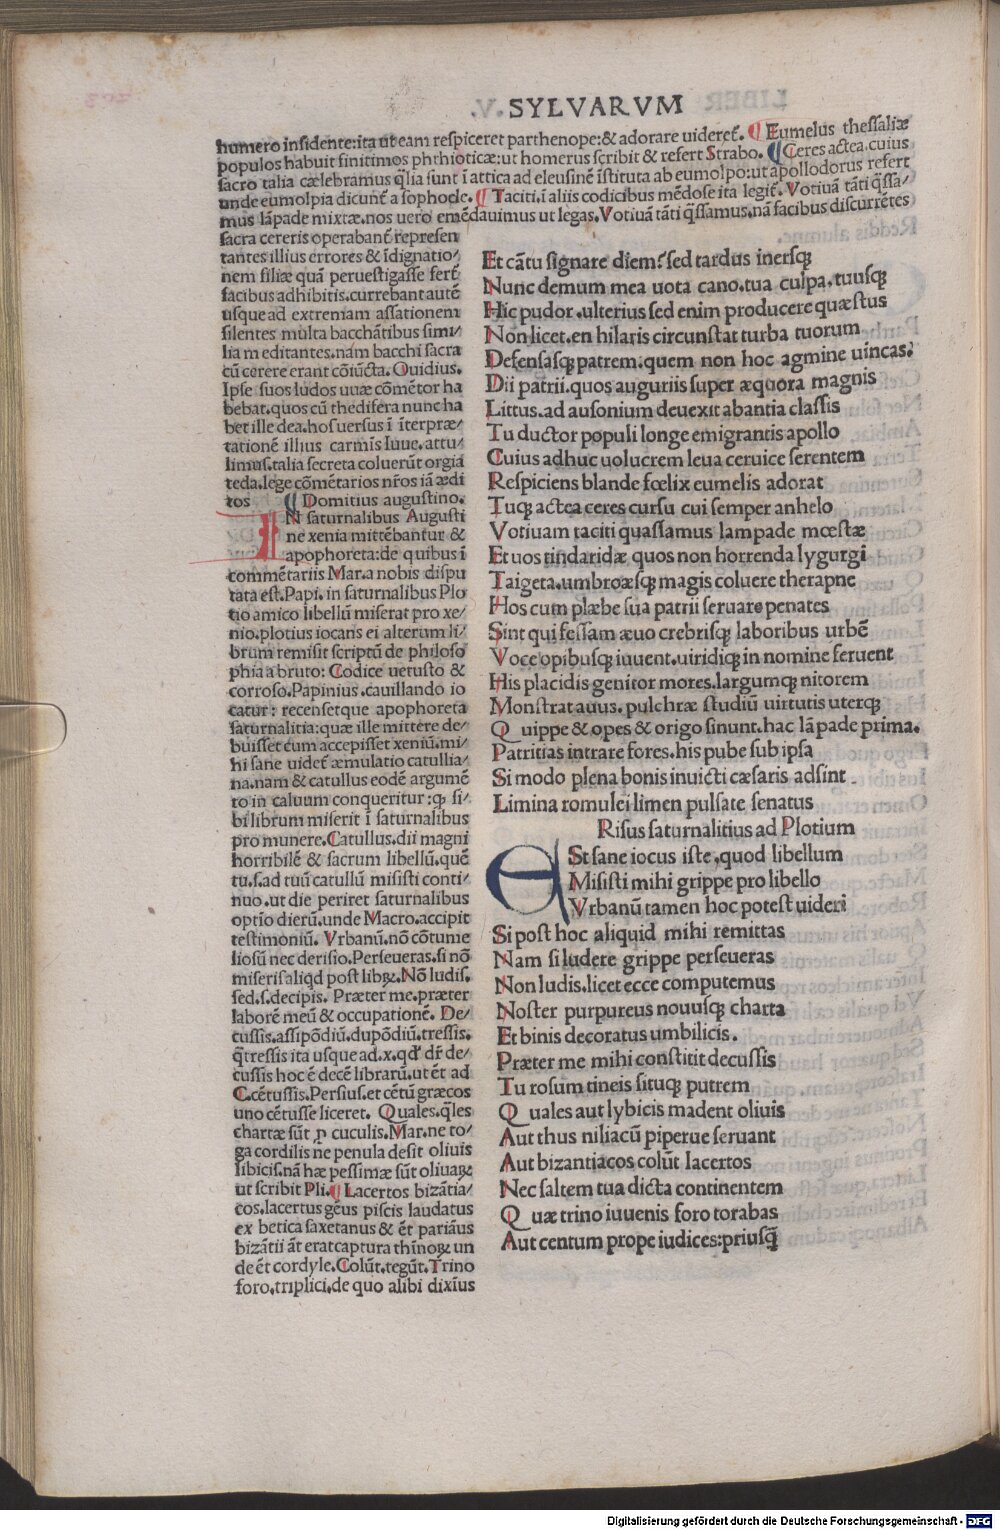 SYLVARVM .V.
humero insidente:ita ut eam respiceret parthenope:& adorare uideret̃. ¶ Eumelus thessaliæ
populos habuit finitimos phthioticæ:ut homerus scribit & refert Strabo. ¶ Ceres actea.cuius
sacro talia cælebramus q̃lia sunt ĩ attica ad eleusinẽ ĩstituta ab eumolpo:ut apollodorus refert
unde eumolpia dicunt̃ a sophocle. ¶ Taciti.ĩ aliis codicibus mẽdose ita legit̃. Votiuã tãti q̃ssa/
mus lãpade mixtæ.nos uero emẽdauimus ut legas. Votiuã tãti q̃ssamus.nã facibus discurrẽtes
sacra cereris operabant̃ represen
tantes illius errores & ĩdignatio/
nem filiæ quã peruestigasse fert̃
facibus adhibitis.currebant autẽ
usque ad extremam assationem
silentes multa bacchãtibus simi/
lia meditantes.nam bacchi sacra
cũ cerere erant cõiũcta. Ouidius.
Ipse suos ludos uuæ cõmẽtor ha
bebat.quos cũ thedifera nunc ha
bet ille dea.hos uersus ĩ ĩterpræ/
tationẽ illius carmĩs Iuue.attu/
limus.talia secreta coluerũt orgia
teda.lege cõmẽtarios nr̃os iã ædi
tos ¶ Domitius augustino.
IN saturnalibus Augusti
ne xenia mittẽbantur &
apophoreta:de quibus ĩ
commẽtariis Mar.a nobis dispu
tata est.Papi. in saturnalibus Plo
tio amico libellũ miserat pro xe/
nio.plotius iocans ei alterum li/
brum remisit scriptũ de philoso
phia a bruto: Codice uetusto &
corroso.Papinius.cauillando io
catur: recensetque apophoreta
saturnalitia:quæ ille mittere de/
buisset cum accepisset xeniũ.mi/
hi sane uidet̃ æmulatio catullia/
na.nam & catullus eodẽ argumẽ
to in caluum conqueritur:ꝙ si/
bi librum miserit ĩ saturnalibus
pro munere.Catullus.dii magni
horribilẽ & sacrum libellũ.quẽ
tu.s.ad tuũ catullũ misisti conti/
nuo.ut die periret saturnalibus
optĩo dierũ.unde Macro.accipit
testimoniũ. Vrbanũ.nõ cõtume
liosũ nec derisio.Perseueras.si nõ
miseris aliqd post libꝝ.Nõ ludis.
sed.s.decipis. Præter me.præter
laborẽ meũ & occupationẽ. De/
cussis.assipõdiũ.dupõdiũ.tressis.
q̃tressis ita usque ad.x.qd' dr̃ de/
cussis hoc ẽ decẽ librarũ.ut ẽt ad
C.cẽtussis.Persius.et cẽtũ græcos
uno cẽtusse liceret. Quales.q̃les
chartæ sũt ꝑ cuculis.Mar.ne to/
ga cordilis ne penula desit oliuis
libicis.nã hæ pessimæ sũt oliuaꝝ
ut scribit Pli. ¶ Lacertos bizãtia/
cos.lacertus geũs piscis laudatus
ex betica saxetanus & ẽt pariãus
bizãtii ãt erat captura thĩnoꝝ un
de ẽt cordyle.Colũt.tegũt.Trino
foro.triplici.de quo alibi dixĩus
Et cãtu signare diem:sed tardus inersq;
Nunc demum mea uota cano.tua culpa.tuusq;
Hic pudor.ulterius sed enim producere quæstus
Non licet.en hilaris circunstat turba tuorum
Defensasq; patrem.quem non hoc agmine uincas.
Dii patrii.quos auguriis super æquora magnis
Littus.ad ausonium deuexit abantia classis
Tu ductor populi longe emigrantis apollo
Cuius adhuc uolucrem leua ceruice serentem
Respiciens blande fœlix eumelis adorat
Tuq; actea ceres cursu cui semper anhelo
Votiuam taciti quassamus lampade mœstæ
Et uos tindaridæ quos non horrenda lygurgi
Taigeta.umbroæsq; magis coluere therapne
Hos cum plæbe sua patrii seruare penates
Sint qui fessam æuo crebrisq; laboribus urbẽ
Voce opibusq; iuuent.uiridiq; in nomine seruent
His placidis genitor mores.largumq; nitorem
Monstrat auus. pulchræ studiũ uirtutis uterq;
Quippe & opes & origo sinunt.hac lãpade prima.
Patritias intrare fores.his pube sub ipsa
Si modo plena bonis inuicti cæsaris adsint
Limina romulei limen pulsate senatus
Risus saturnalitius ad Plotium
ESt sane iocus iste,quod libellum
Misisti mihi grippe pro libello
Vrbanũ tamen hoc potest uideri
Si post hoc aliquid mihi remittas
Nam si ludere grippe perseueras
Non ludis.licet ecce computemus
Noster purpureus nouusq; charta
Et binis decoratus umbilicis.
Præter me mihi constitit decussis
Tu rosum tineis situq; putrem
Quales aut lybicis madent oliuis
Aut thus niliacũ piperue seruant
Aut bizantiacos colũt lacertos
Nec saltem tua dicta continentem
Quæ trino iuuenis foro torabas
Aut centum prope iudices:priusq̃
Digitalisierung gefördert durch die Deutsche Forschungsgemeinschaft - DFG